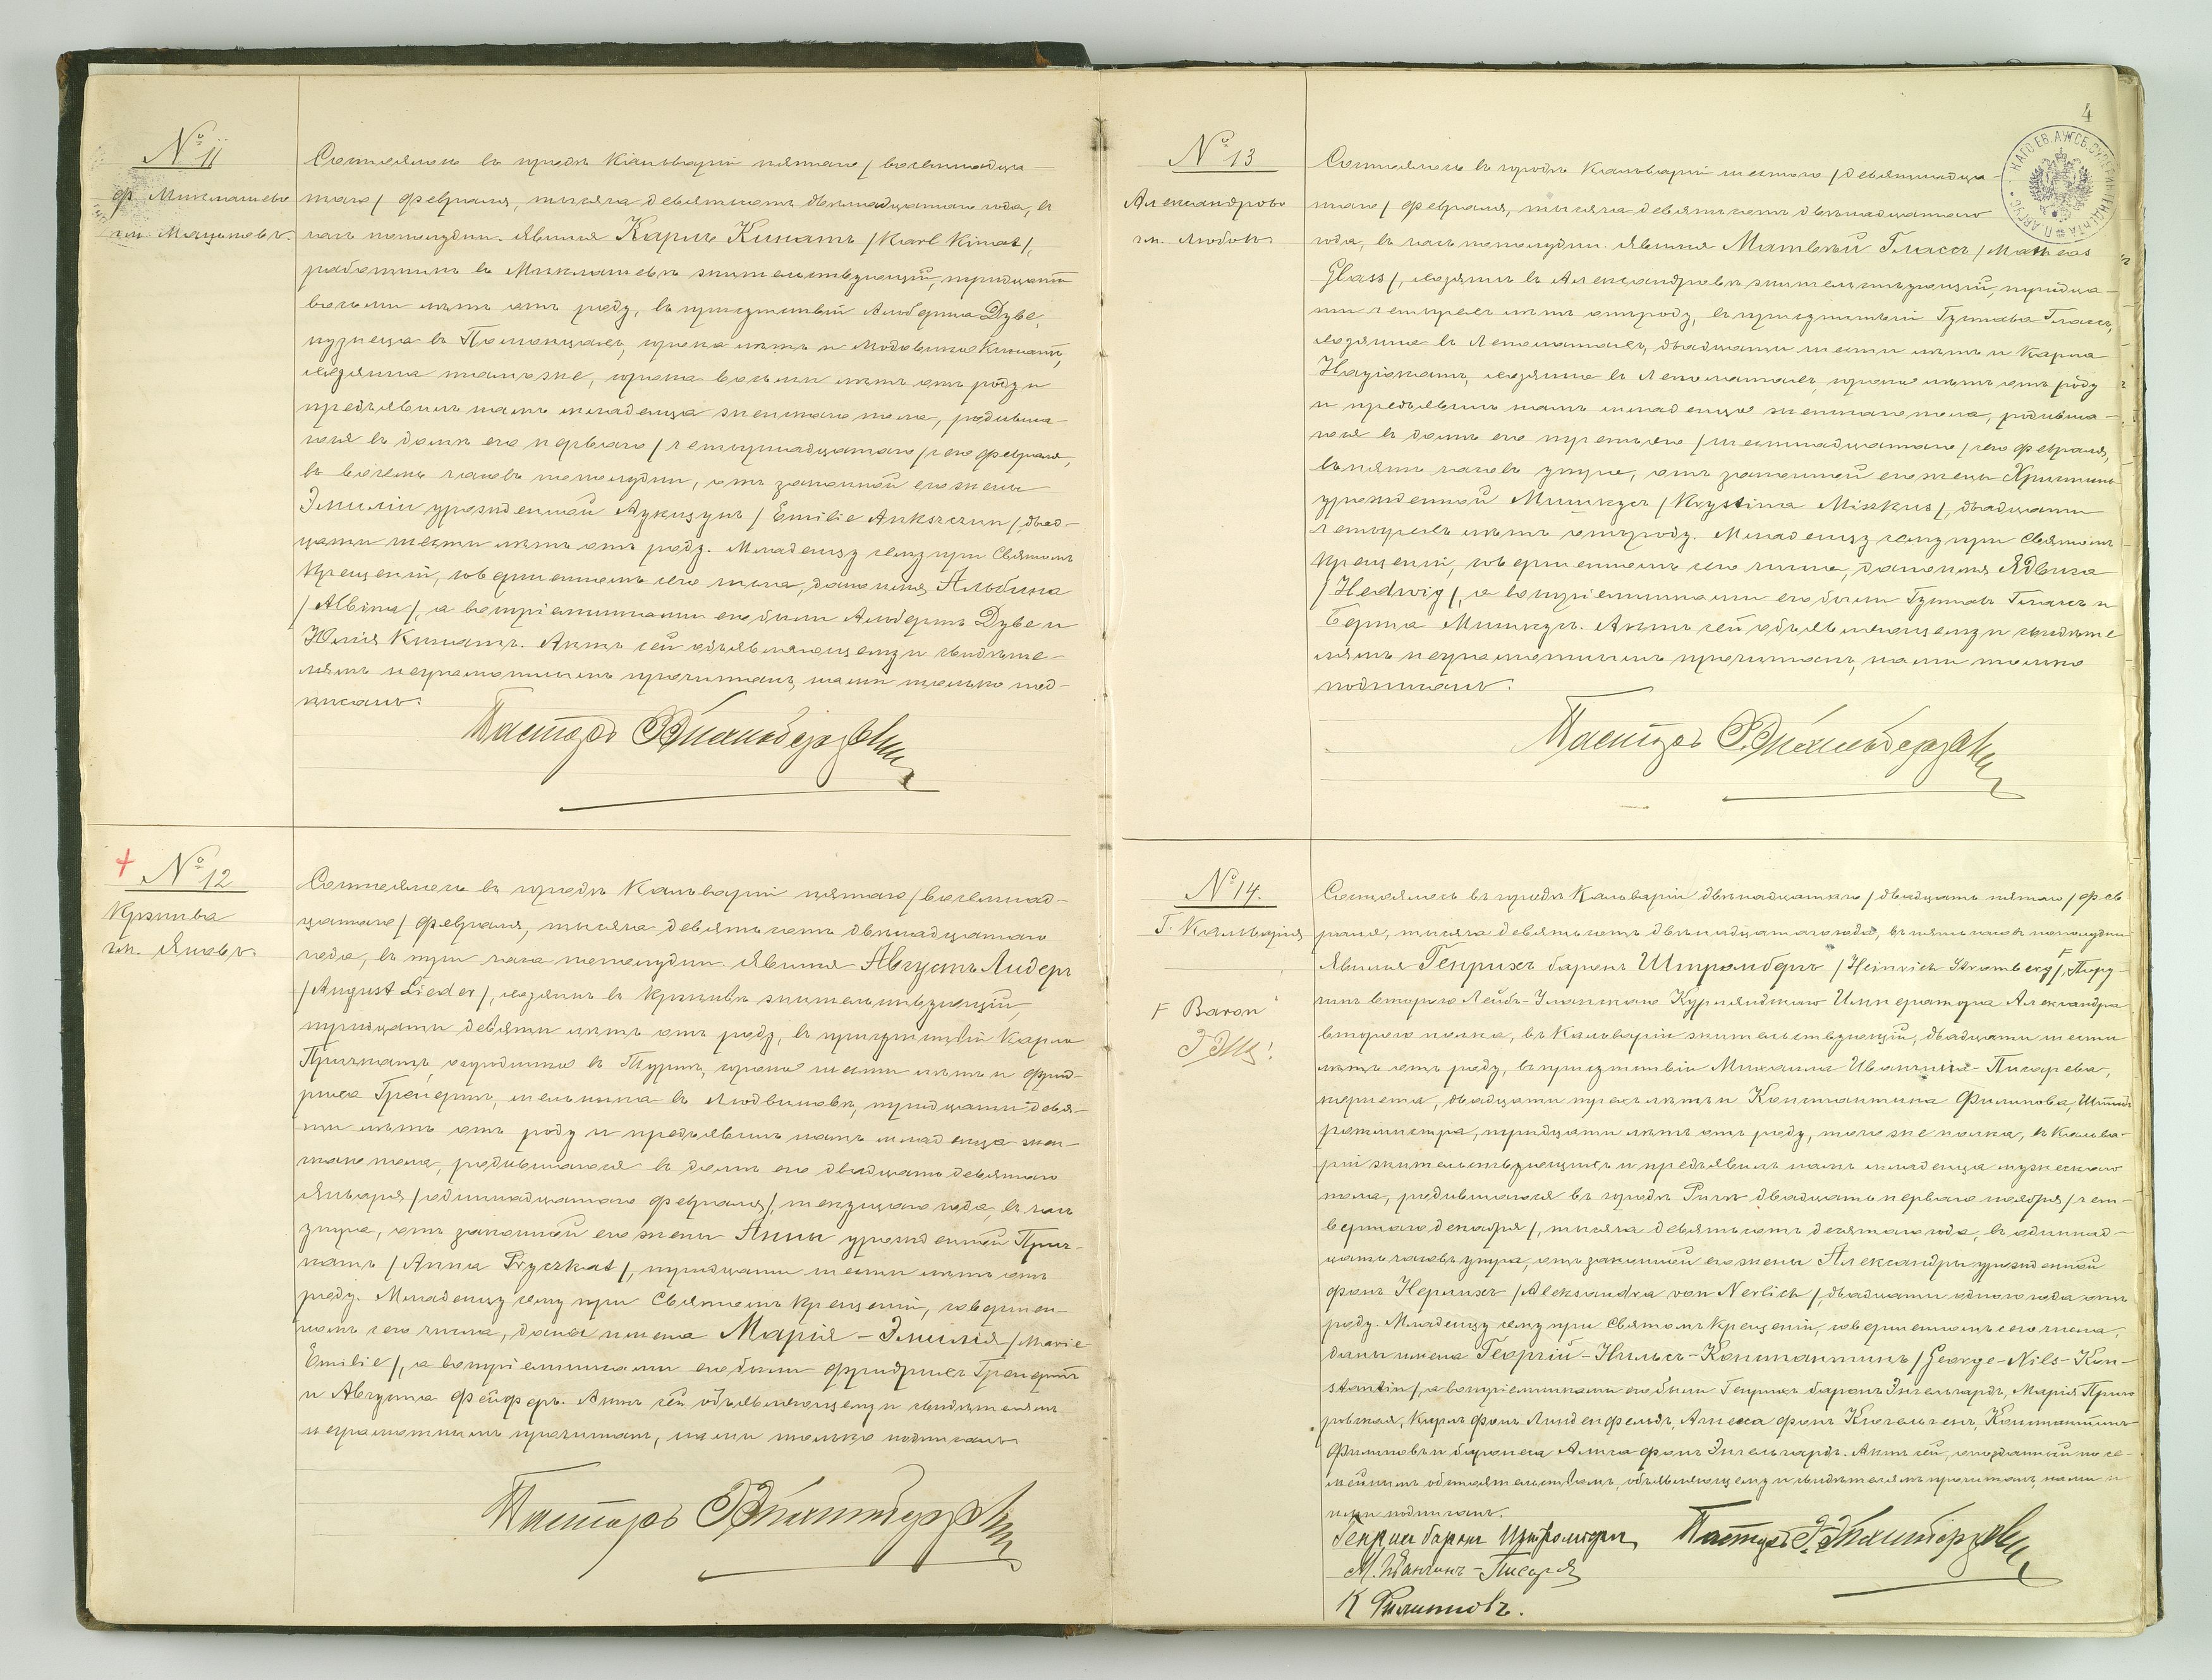 № 11
ф. Миклашево
гм. Мацьково.
Состоялось въ городѣ Кальваріи пятаго /восемнадца-
таго/ февраля, тысяча девятьсотъ двѣнадцатаго года, въ
часъ пополудни. Явился Карлъ Кинатъ /Karl Kinat/,
работникъ въ Миклашевѣ жительствующій, тридцати
восьми лѣтъ отъ роду, въ присутствіи Альберта Дубе,
кузнеца въ сорока лѣтъ и Людовика Кинатъ,
хозяина тамъ же, сорока восьми лѣтъ отъ роду и
предъявилъ намъ младенца женскаго пола, родивша-
гося въ домѣ его перваго /четырнадцатаго/ сего февраля,
въ восемь часовъ пополудни, отъ законной его жены
Эмиліи урожденной Аукщунъ /Emilie Aukszczun/, двад-
цати шести лѣтъ отъ роду. Младенцу сему при Святомъ
Крещеніи, совершенномъ сего числа, дано имя Альбина
/Albina/, а воспріемниками его были Альбертъ Дубе и
Юлія Кинатъ. Актъ сей объявляющему и свидѣте-
лямъ неграмотнымъ прочитанъ, нами только под-
писанъ.
Пасторъ
№ 12
Кржива
гм. Яново.
Состоялось въ городѣ Кальваріи пятаго /восемнад-
цатаго/ февраля, тысяча девятьсотъ двѣнадцатаго
года, въ три часа пополудни. Явился Августъ Лидеръ
/August Lieder/, хозяинъ въ Крживѣ жительствующій,
тридцати девяти лѣтъ отъ роду, въ присутствіи Карла
Причкатъ, огородника въ сорока шести лѣтъ и Фрид-
риха мельника въ Людвиновѣ, тридцати девя-
ти лѣтъ отъ роду и предъявилъ намъ младенца жен-
скаго пола, родившагося въ домѣ его двадцать девятаго
Января /одиннадцатаго февраля/, текущаго года, въ часъ
утра, отъ законной его жены Анны урожденной Прич-
катъ /Anna Pryczkat/, тридцати шести лѣтъ отъ
роду. Младенцу сему при Святомъ Крещеніи, совершен-
номъ сего числа, даны имена Марія-Эмилія /Marie
Emilie/, а воспріемниками его были Фридрихъ
и Августа Фейферъ. Актъ сей объявляющему и свидѣтелямъ
неграмотнымъ прочитанъ, нами только подписанъ.
Пасторъ
4
№ 13
Александрово
гм. Любово
Состоялось въ городѣ Кальваріи шестаго /девятнадца-
таго/ февраля, тысяча девятьсотъ двѣнадцатаго
года, въ часъ пополудни. Явился Матвѣй Глассъ /Matheas
Glass/, хозяинъ въ Александровѣ жительствующій, тридца-
ти четырехъ лѣтъ отъ роду, въ присутствіи Густава Глассъ,
хозяина въ двадцати шести лѣтъ и Карла
хозяина въ сорока лѣтъ отъ роду
и предъявилъ намъ младенца женскаго пола, родивша-
гося въ домѣ его третьяго /шестнадцатаго/ сего февраля,
въ пять часовъ утра, отъ законной его жены Христины
урожденной Мишкусъ /Krystina Miszkus/, двадцати
четырехъ лѣтъ отъ роду. Младенцу сему при Святомъ
Крещеніи, совершенномъ сего числа, дано имя Ядвига
/Hedwig/, а воспріемниками его были Густавъ Глассъ и
Берта Мишкусъ. Актъ сей объявляющему и свидѣте
лямъ неграмотнымъ прочитанъ, нами только
подписанъ.
Пасторъ
№ 14.
Г. Кальварія
F Baron
Состоялось въ городѣ Кальваріи двѣнадцатаго /двадцать пятаго/ фев
раля, тысяча девятьсотъ двѣнадцатаго года, въ пять часовъ пополудни
Явился Генрихъ баронъ Штромбергъ /Heinrich Stromberg/, F Пору-
чикъ второго Лейбъ-Уланскаго Курляндскаго Императора Александра
второго полка, въ Кальваріи жительствующій, двадцати шести
лѣтъ отъ роду, въ присутствіи Михаила Иванчина-Писарева,
корнета, двадцати трехъ лѣтъ и Константина Филипова, Штабъ
ротмистра, тридцати лѣтъ отъ роду, того же полка, въ Кальва-
ріи жительствующихъ и предъявилъ намъ младенца мужескаго
пола, родившагося въ городѣ Ригѣ двадцать перваго ноября /чет-
вертаго декабря/, тысяча девятьсотъ десятаго года, въ одиннад-
цать часовъ утра, отъ законной его жены Александры урожденной
фонъ Нерлихъ /Aleksandra von Nerlich/, двадцати одного года отъ
роду. Младенцу сему при Святомъ Крещеніи, совершенномъ сего числа,
даны имена Георгій-Нильсъ-Константинъ /George-Nils-Kon-
stantin/, а воспріемниками его были Генрихъ баронъ Энгельгардъ, Марія
Карлъ фонъ Линденфельдъ, Агнесса фонъ Константинъ
Филиповъ и баронеса Алиса фонъ Энгельгардъ. Актъ сей, опозданный по се-
мейнымъ обстоятельствамъ, объявляющему и свидѣтелямъ прочитанъ, нами и
ими подписанъ.
Генрихъ баронъ Штромбергъ Пасторъ
М. Иванчинъ-Писаревъ
К Филиповъ.